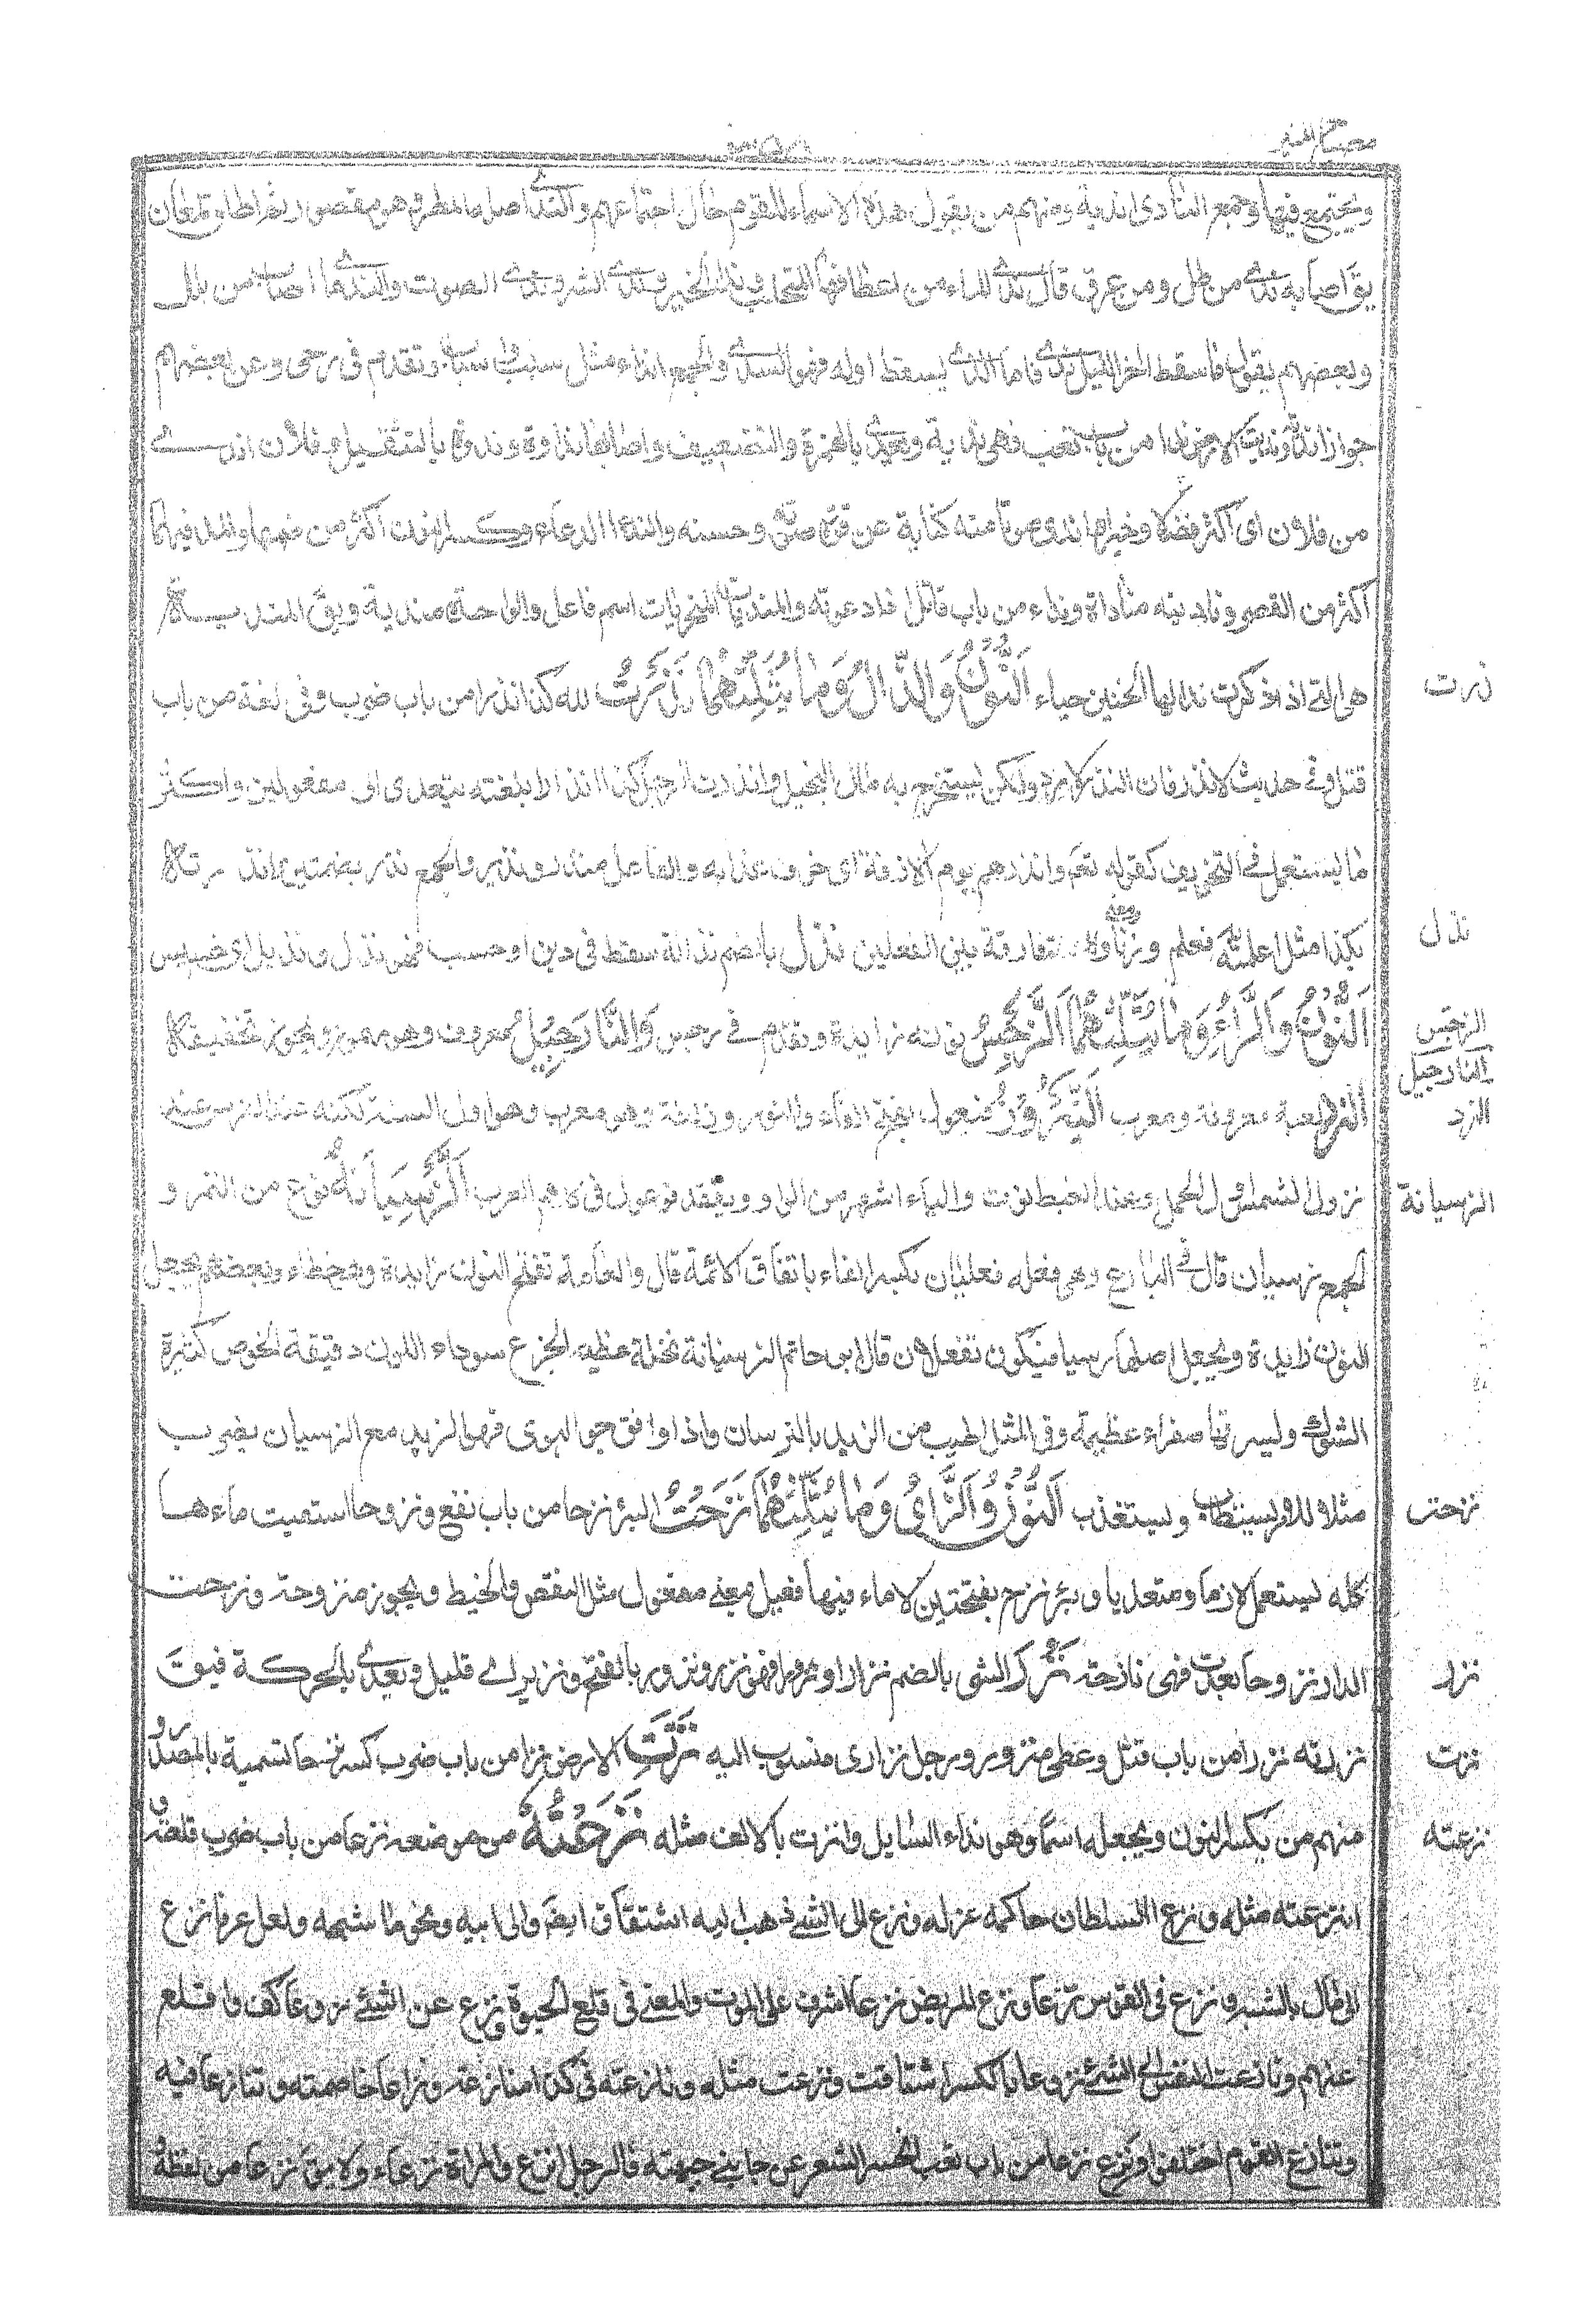 مصباح المنير
ويجتمع فيها وجمع النادى اندية ومنهم من يقول هذه الاسماء للقوم حال اجتماعهم والندى اصل المطر وهو مقصور
يق اصابه ندى من طل ومن عرق قال ندى الماء من وندى الخير وندى الشر وندى الصوت والندى ما اصاب من بلل
وبعضهم يقول ما سقط اخر الليل ندى فاما الذى يسقط اوله فهو السدى والجمع انداء مثل سبب واسباب وتقدم فى رحى وعن بعضهم
جواز اندية ونديت الارض ندا من باب تعب فهى ندية ويعدى بالهمزة والتضعيف واصابها نداوة وندوة بالتثقيل وفلان اندى
من فلان اى اكثر فضلا وخيرا واندى صوتا منه كناية عن قوة صوته وحسنه والندا الدعاء وكسر النون اكثر من ضمها والمد فيها
اكثر من القصر وناديته مناداة ونداء من باب قاتل اذا دعوته والمنديات المخزيات اسم فاعل والواحدة مندية ويق المندية
هى التى اذا ذكرت ندا لها الجبين حياء اَلنُّوْنُ وَالذَّالُ وَمَا يُثَلِّثُهُمَا نَذَرْتُ لله كذا نذرا من باب ضرب وفى لغة من باب
قتل وفى حديث لا تنذر فان النذر لا يرد ولكن يستخرج به مال البخيل وانذرت الرجل كذا انذارا ابلغته يتعدى الى مفعولين واكثر
ما يستعمل فى التخويف كقوله تعم وانذرهم يوم الازفة اى خوفهم عذابه والفاعل منذر ونذير والجمع نذر بضمتين وانذرته
بكذا مثل اعلمته فعلم وزنا ومعنى فالصلة فارقة بين الفعلين نذل بالضم نذالة سقط فى دين او حسب فهو نذل ونذيل اى خسيس
اَلنُّوْنُ وَالرَّاءُ وَمَا يُثَلِّثُهُمَا اَلنَّرْجِسُ نونه زايدة وتقدم فى رجس وَالنَّارَجِيْلُ معروف وهو مهموز ويجوز تخفيفه
النرد لعبة معروفة ومعرب اَلنَّيْرُوْزُ فيعول بفتح الفاء والنوروز لغة وهو معرب وهو اول السنة لكنه عند الفرس عند
نزول الشمس اول الحمل وعند القبط توت والياء اشهر من الواو لفقد فوعول فى كلام العرب اَلنِّرْسِيَانَةُ نوع من التمر و
الجمع نرسيان قال فى البارع وهى فعليانة فعليان بكسر الفاء باتفاق الائمة قال والعامة تفتح النون زايدة وهو خطاء وبعضهم يجعل
النون زايدة ويجعل اصلها رسيا فيكون نفعلان قال ابو حاتم النرسيانة نخلة عظيمة الجزع سوداء اللون دقيقة الخوص كثيرة
الشوك وبسرتها صفراء عظيمة وفى المثل اطيب من الزبد بالنرسيان واذا وافق حق الهوى فهو الزبد مع النرسيان يضرب
مثلا للامر يستطاب ويستعذب اَلنُّوْنُ وَالزَّاىُ وَمَا يُثَلِّثُهُمَا نَزَحْتُ البئر نزحا من باب نفع ونزوحا استقيت ماءها
كله يستعمل لازما ومتعديا وبئر نزح بفتحتين لا ماء فيها فعيل بمعنى مفعول مثل النفض والخبط ويجوز منزوحة ونزحت
الدار نزوحا بعدت فهى نازحة نَزُرَ الشى بالضم نزارا ونزورا فهو نزر ونزور بالفتح ونزير اى قليل ويعدى بالحركة فيق
نزرته نزرا من باب قتل وعطاء منزور ورجل نزارى منسوب اليه نَزَّتِ الارض نزا من باب ضرب كثر نزها تسمية بالمصدر و
منهم من يكسر النون ويجعله اسما وهو نداء السايل وانزت بالالف مثله نَزَعْتُهُ من موضعه نزعا من باب ضرب قلعته و
انتزعته مثله ونزع السلطان حاكمه عزله ونزع الى الشئ ذهب اليه اشتقاق ايضا والى ابيه ونحوه اشبهه ولعل عرقا نزع
اى مال بالشبه ونزع فى القوس نزعا ونزع المريض نزعا اشرف على الموت والمعنى فى قلع الحيوة ونزع عن الشئ نزوعا كف واقلع
عنهم ونازعت النفس الى الشئ نزوعا بالكسر اشتاقت ونزعت مثله ونازعته فى كذا منازعة ونزاعا خاصمته وتنازعا فيه
وتنازع القوم اختلفوا ونزع نزعا من باب تعب انحسر الشعر عن جانبى جبهته فالرجل انزع والمراة نزعاء ولا يق نزعا من لفظه
نذرت
نذل
النرجس
النارجيل
النرد
النرسيانة
نزحت
نزار
نزت
نزعته